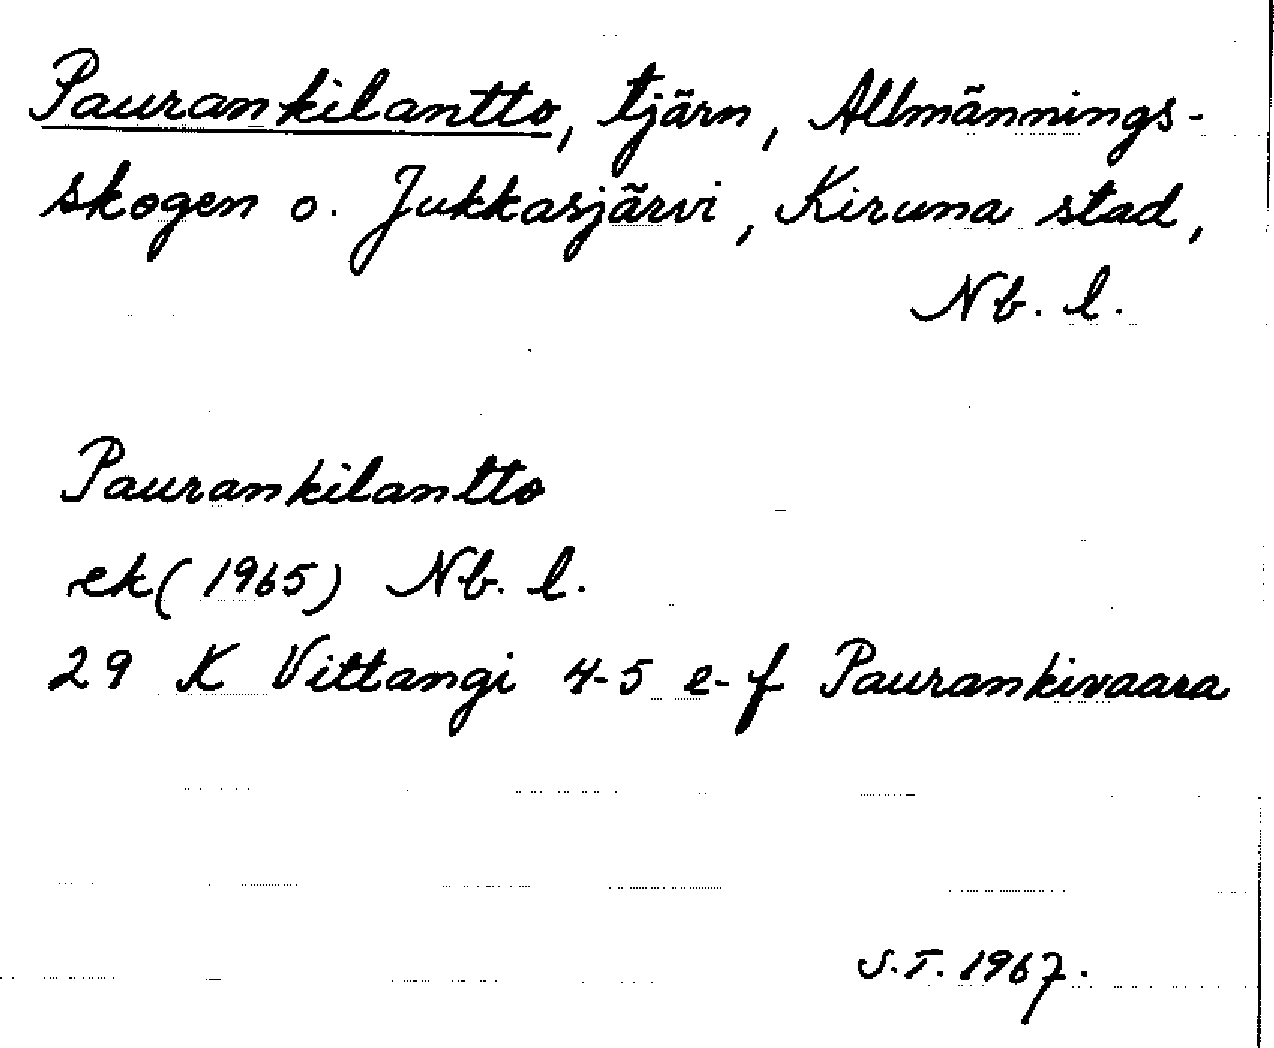 Paurankilantto, tjärn, Allmännings-
skogen o. Jukkasjärvi, Kiruna stad,
Nb. l.
Paurankilantto
ek (1965) Nb. l.
29 K Vittangi 4-5 e-f Paurankivaara
S.T. 1967.